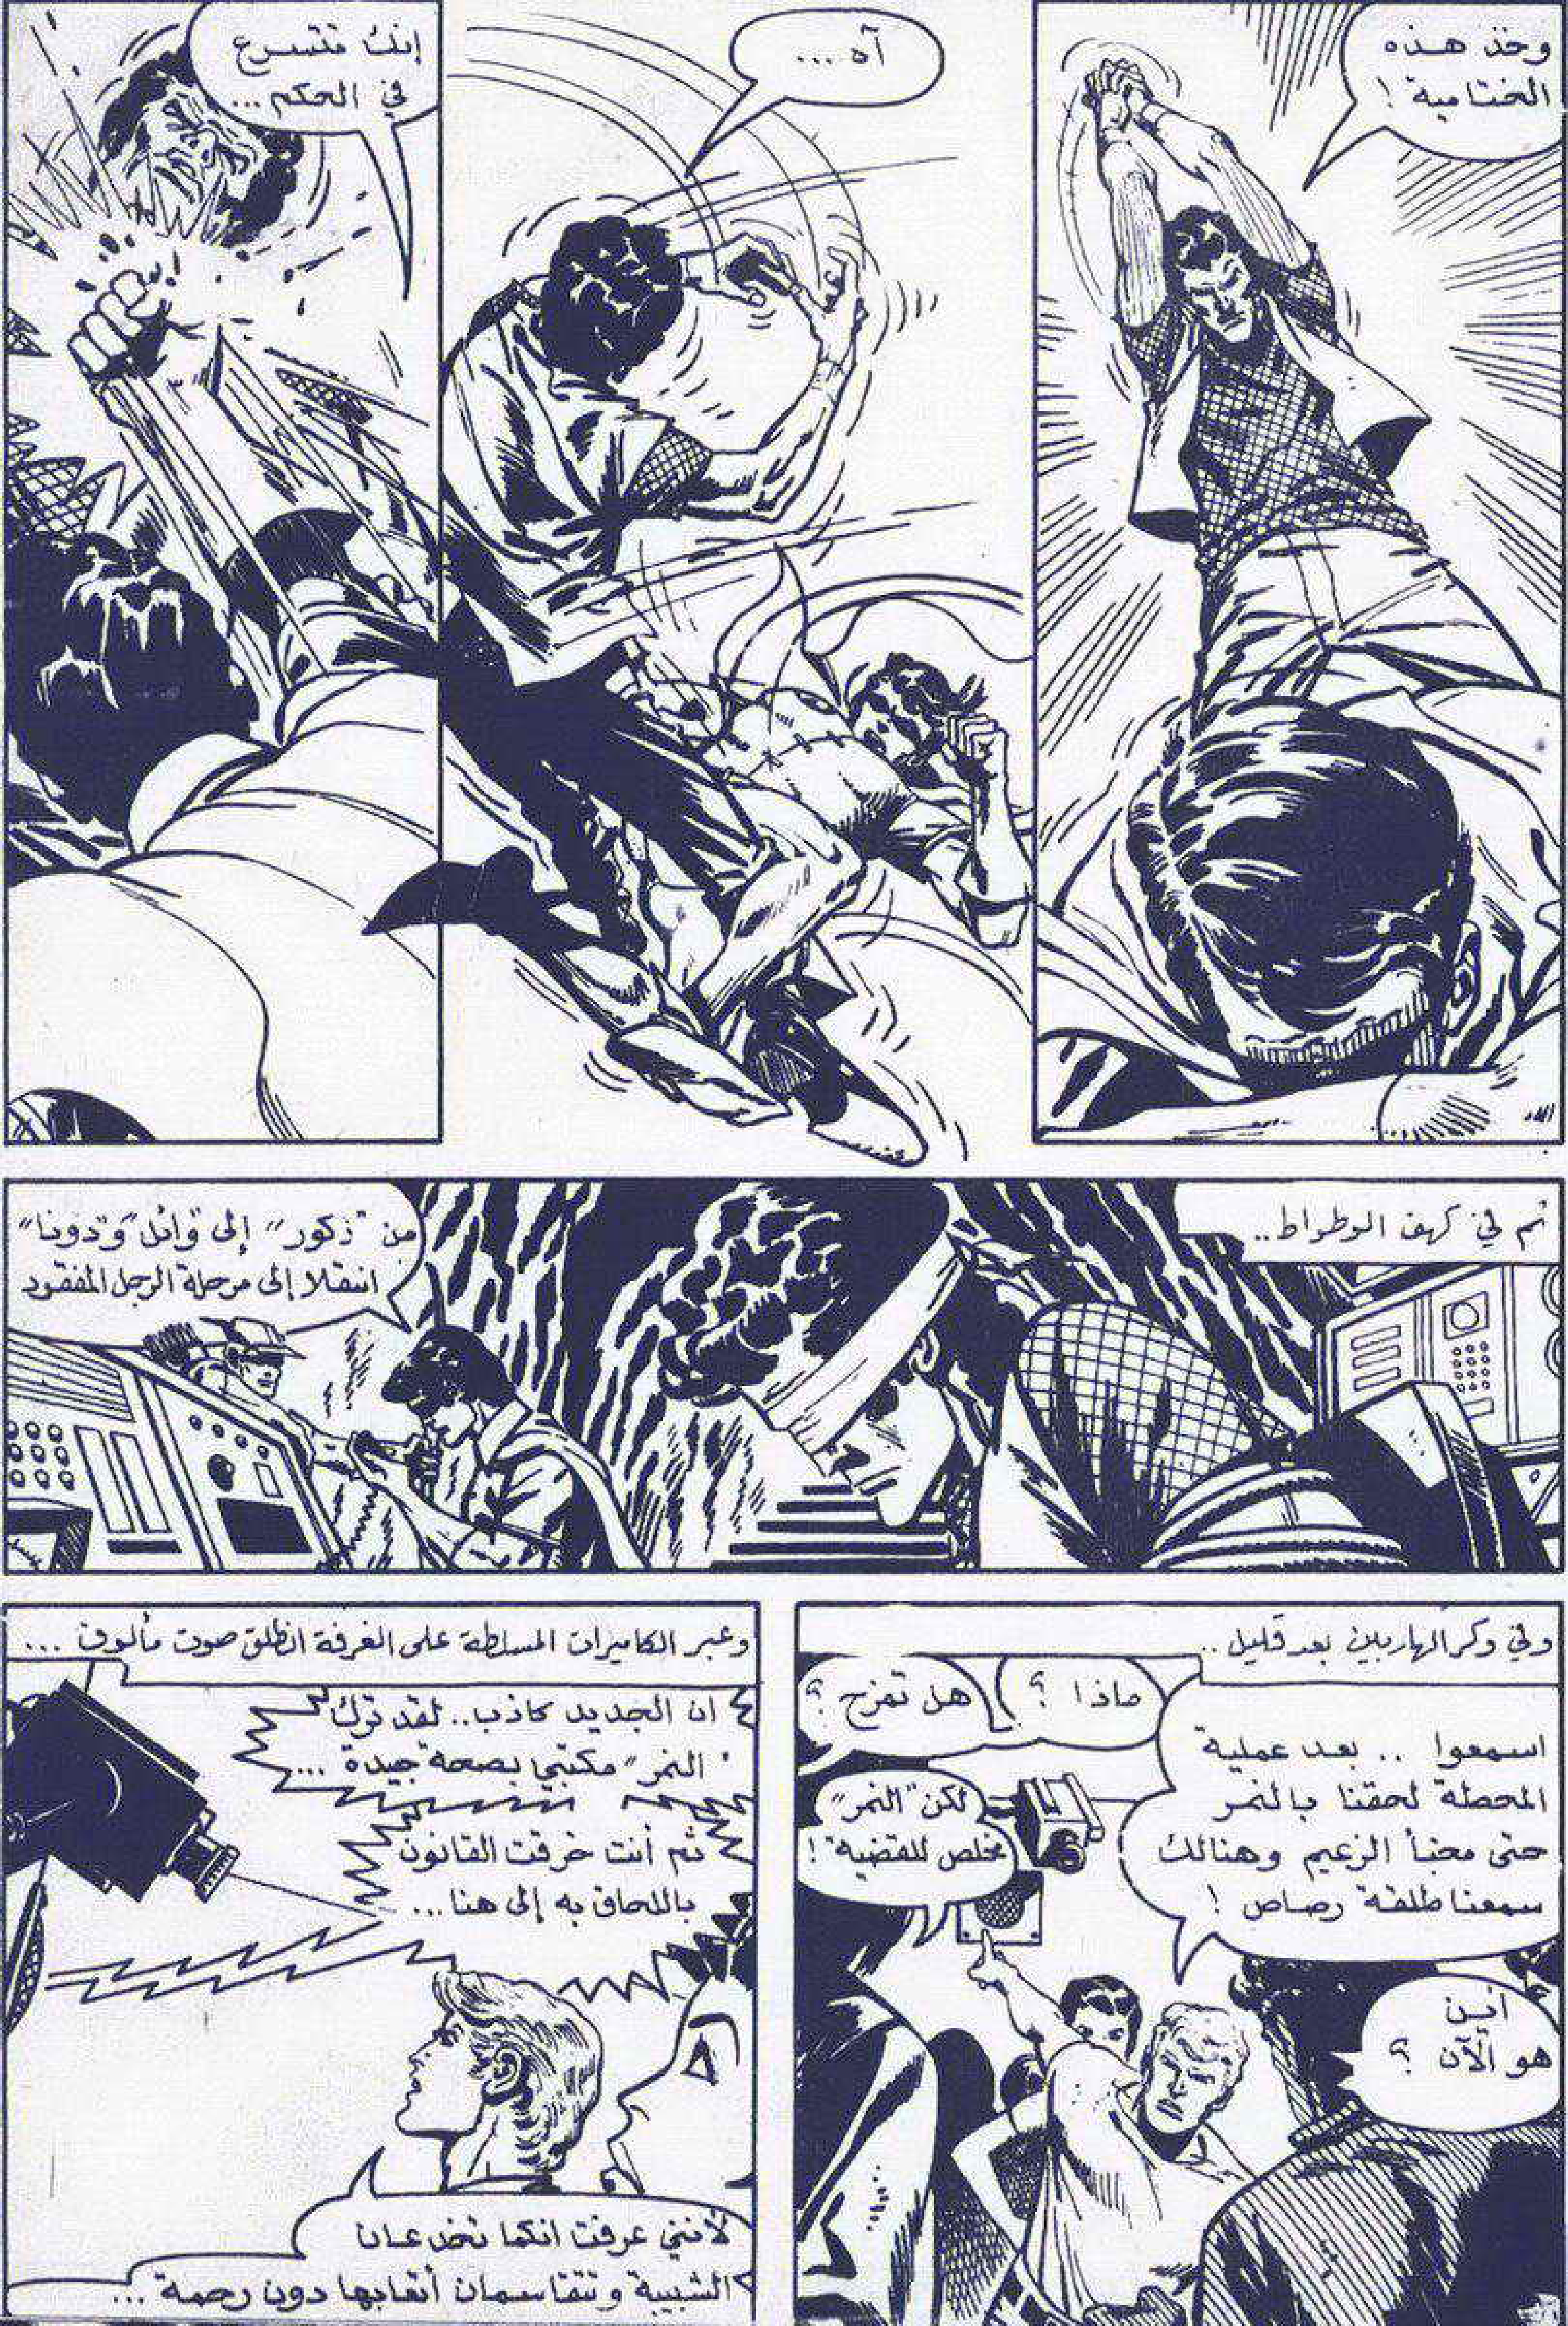 وخذ هذه
الختامية !
آه ...
إنك تتسرع
في الحكم ...
ثم في كهف الوطواط ..
من "زكور" إلى "وائل" و"دونا"
انتقلا إلى مرحلة الرجل المفقود
وفي وكر الهاربين بعد قليل ..
اسمعوا .. بعد عملية
المحطة لحقنا بالنمر
حتى مخبأ الزعيم وهنالك
سمعنا طلقة رصاص !
ماذا ؟
هل تمزح ؟
لكن "النمر"
مخلص للقضية !
أين
هو الآن ؟
وعبر الكاميرات المسلطة على الغرفة انطلق صوت مألوف ...
ان الجديد كاذب .. لقد ترك
"النمر" مكتبي بصحة جيدة ...
ثم أنت خرقت القانون
باللحاق به إلى هنا ...
لأنني عرفت انكما تخدعان
الشبيبة وتتقاسمان أتعابها دون رحمة ...